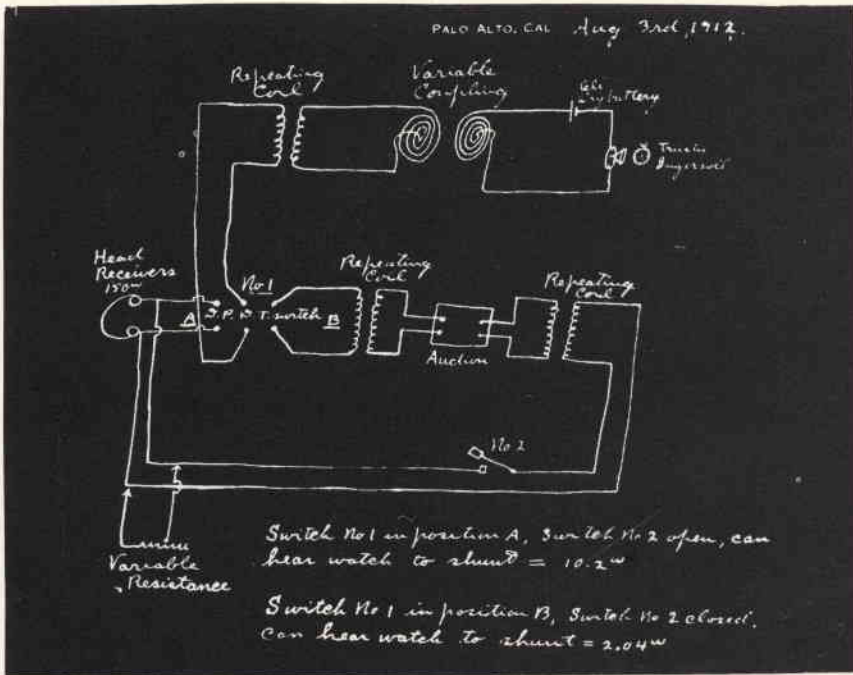 PALO ALTO, CAL Aug 3rd, 1912.
Repeating
Coil
Variable
Coupling
battery
Ingersoll
Head
Receivers
150ω
No 1
A D.P. D.T. switch B
Repeating
Coil
Repeating
Coil
Audion
No 2
Variable
Resistance
Switch No 1 in position A, Switch No 2 open, can
hear watch to shunt = 10.2ω
Switch No 1 in position B, Switch No 2 closed.
can hear watch to shunt = 2.04ω